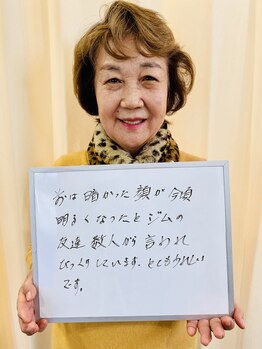 前は暗かった顔が今頃
明るくなったとジムの
友達数人から言われ
びっくりしています、とてもうれしい
です。